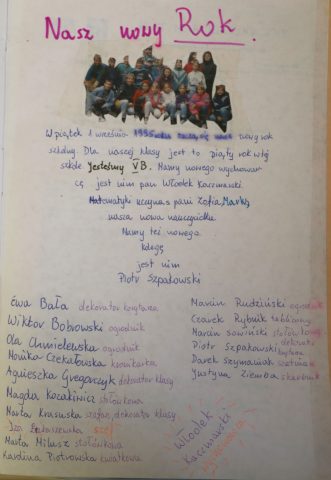 Nasz nowy Rok.
W piątek 1 września 1995 roku zaczął się nowy rok
szkolny. Dla naszej klasy jest to piąty rok w tej
szkole Jesteśmy V B. Mamy nowego wychowaw-
cę jest nim pan Włodek Kaczmarski.
Matematyki uczy nas pani Zofia Marks,
nasza nowa nauczycielka
Mamy też nowego
kolegę
jest nim
Piotr Szpakowski
Ewa Bała dekorator korytarza
Wiktor Bobrowski ogrodnik
Ola Chmielewska ogrodnik
Monika Czekałowska kronikarka
Agnieszka Gregorczyk dekorator klasy
Magda Kozakiewicz stołówkowa
Marta Krasuska szafar, dekorator klasy
Iza szef
Marta Milusz stołówkowa
Karolina Piotrowska kwiatkowa
Marcin Rudziński ogrodnik
Czarek Rybnik tablicowy
Marcin Sowiński stołówkowy
Piotr Szpakowski dekorator korytarza
Darek Szymaniak szatniarz
Justyna Ziemba skarbnik
Włodek
Kaczmarski
wychowawca